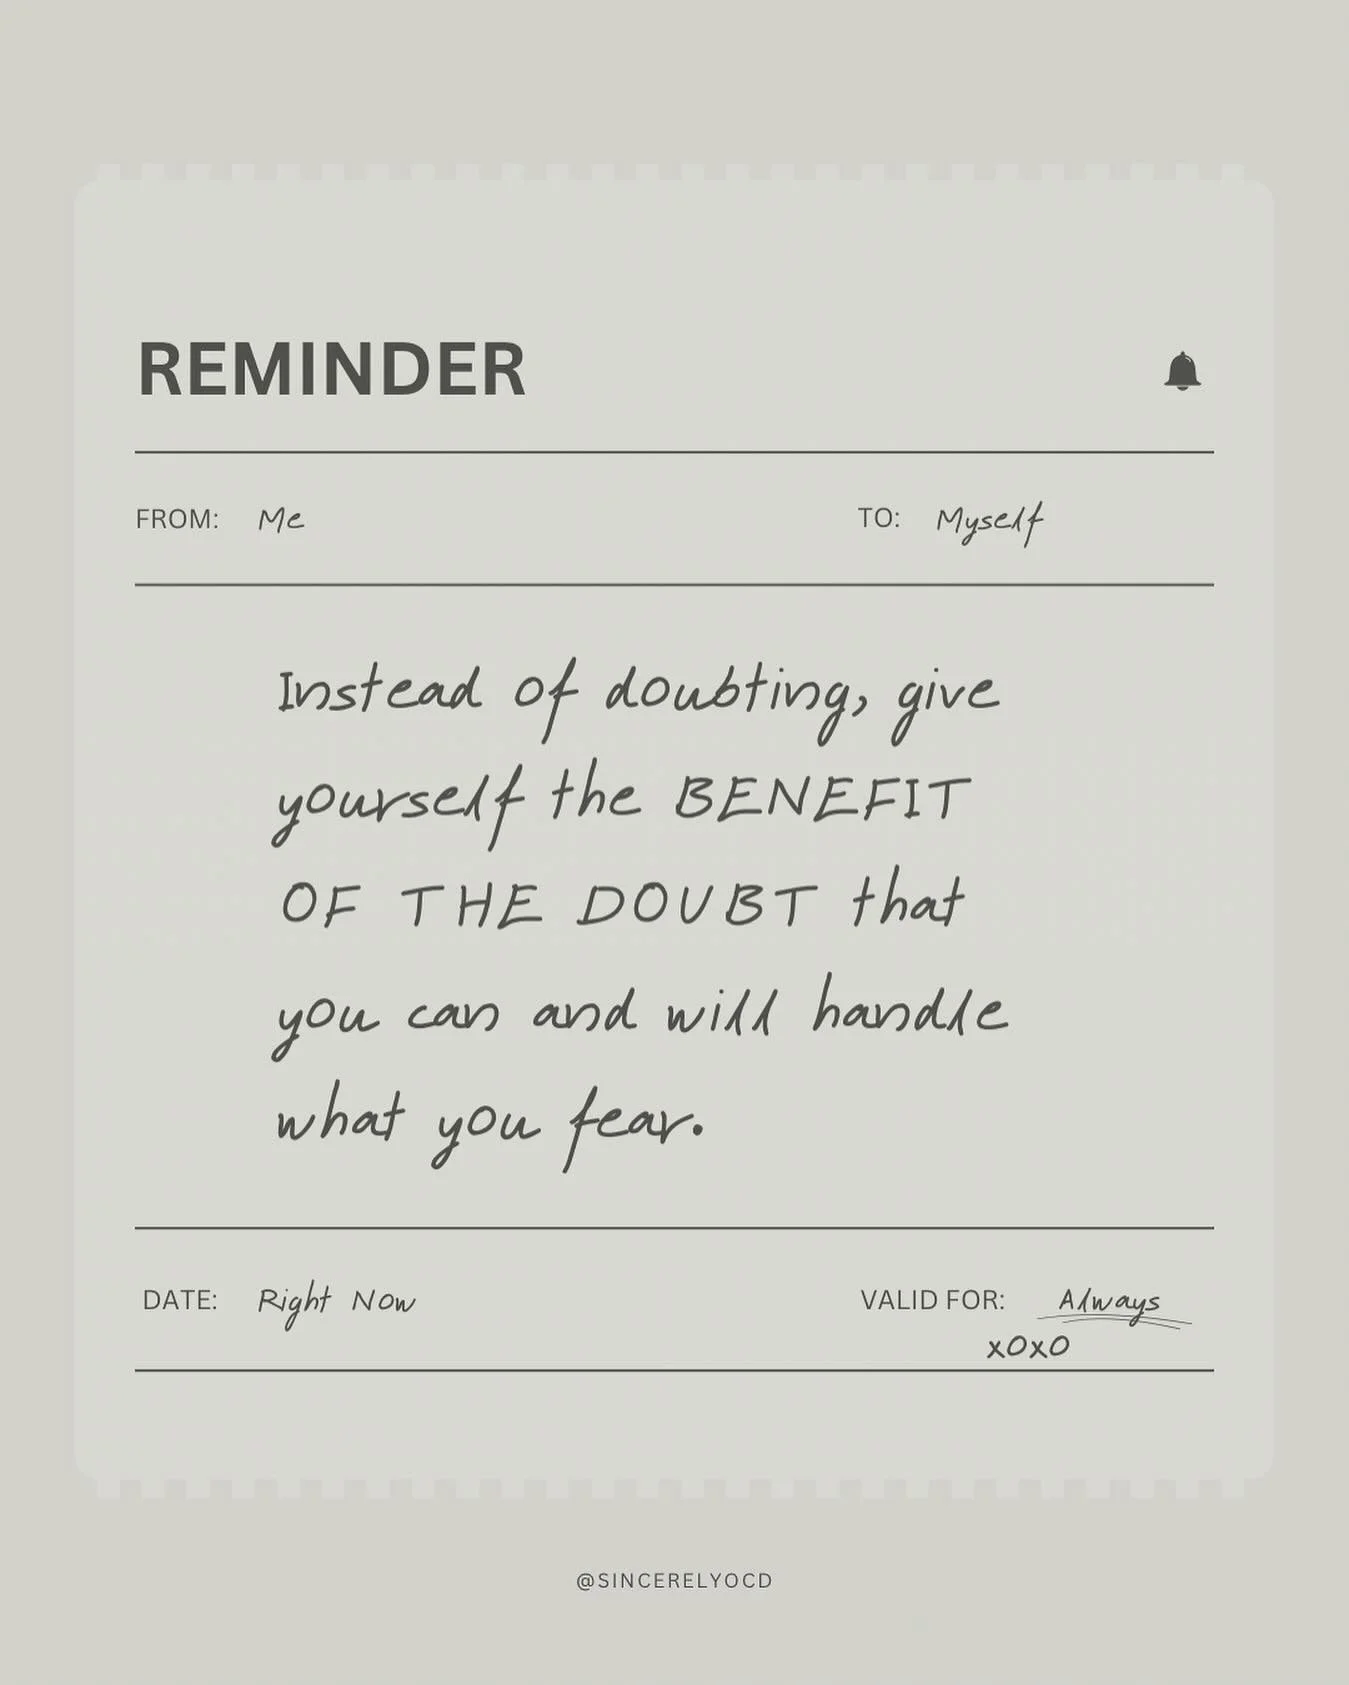 REMINDER
FROM: Me TO: Myself
Instead of doubting, give
yourself the BENEFIT
OF THE DOUBT that
you can and will handle
what you fear.
DATE: Right Now VALID FOR: Always
xOxO
@SINCERELYOCD